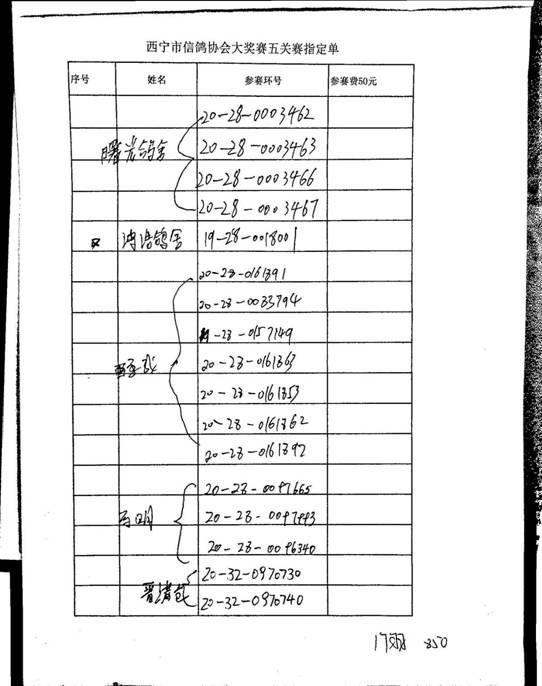 西宁市信鸽协会大奖赛五关赛指定单
序号 姓名 参赛环号 参赛费50元
20-28-0003462
曙光鸽舍 20-28-0003463
20-28-0003466
20-28-0003467
鸽舍 19-28-0018001
20-28-0161891
20-28-0033794
19-28-0157149
20-28-0161863
20-28-0161853
20-28-0161862
20-28-0161892
20-28-0097665
马明 20-28-0097993
20-28-0096340
20-32-0970730
20-32-0970740
17羽 850